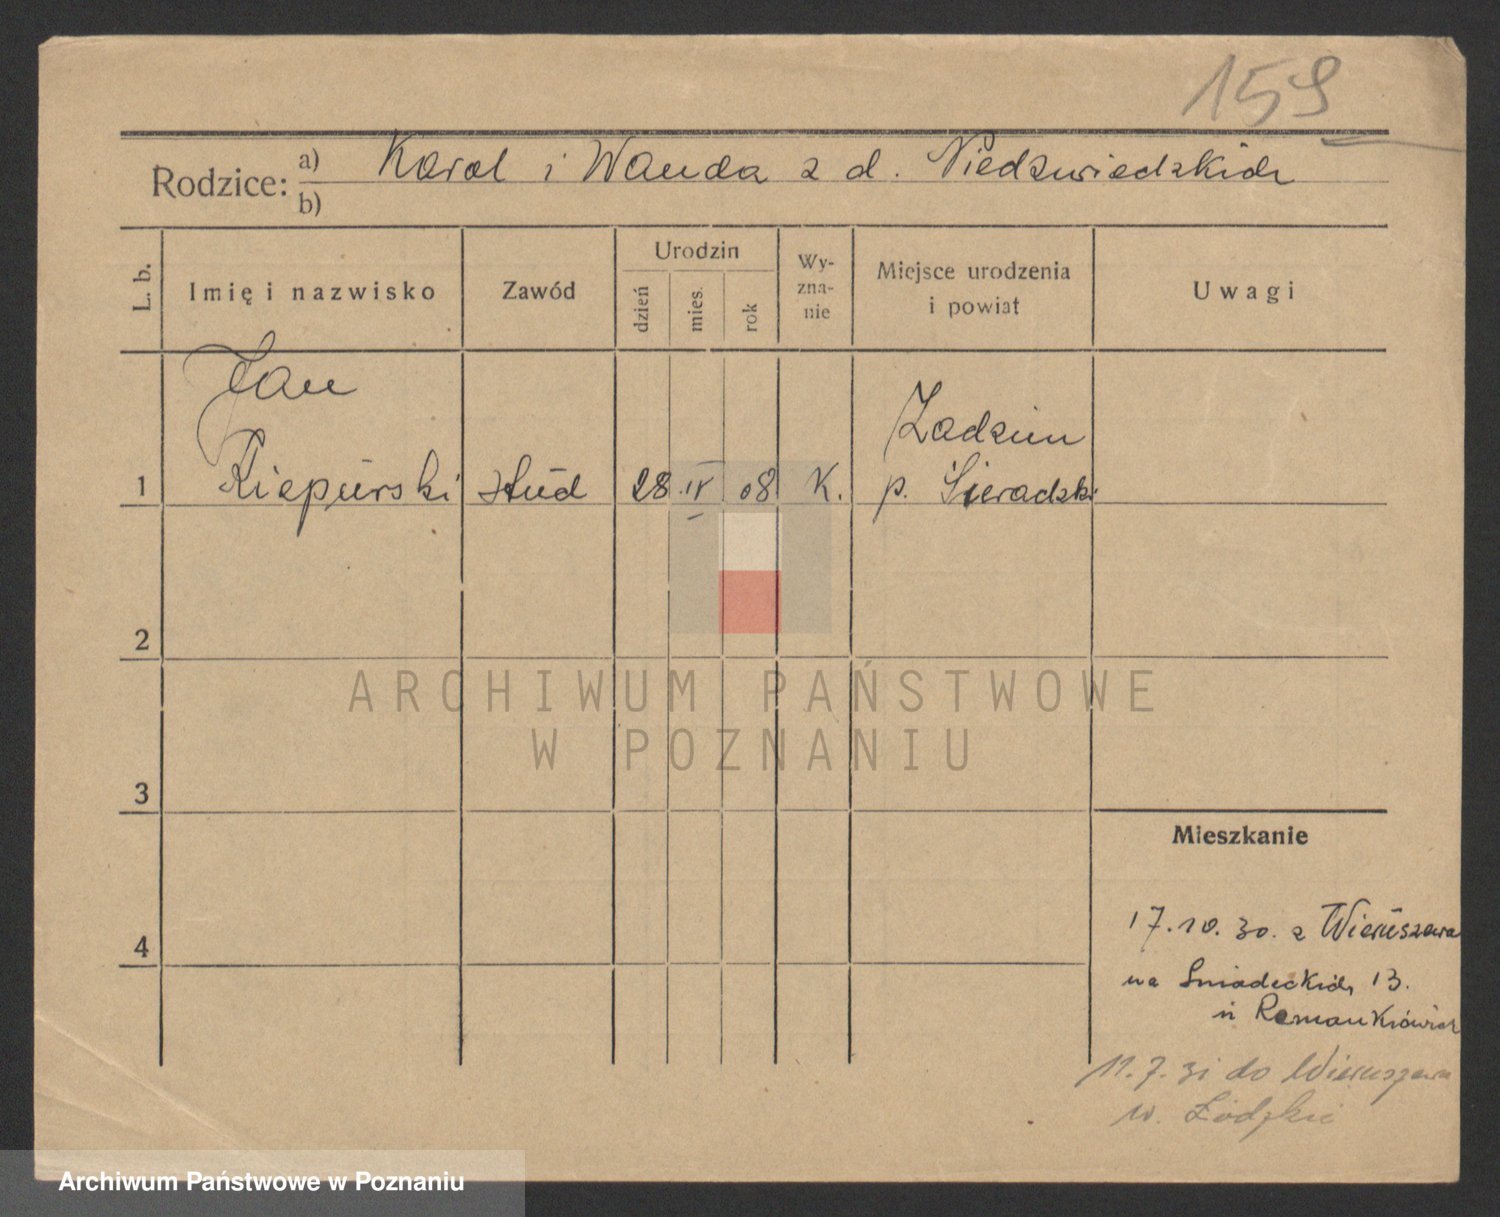 159
Rodzice: a) Karol i Wanda z d. Niedzwiedzkich
b)
L. b. Imię i nazwisko Zawód Urodzin dzień mies. rok Wy-zna-nie Miejsce urodzenia i powiat Uwagi
Jan Zadzim
1 Kiepurski stud 28 IV 08 K. p. Sieradzki
2
ARCHIWUM PAŃSTWOWE
W POZNANIU
3
Mieszkanie
4 17.10.30. z Wieruszowa
na Sniadeckich 13.
u
11.7.31 do Wieruszowa
w. Łódzkie
Archiwum Państwowe w Poznaniu